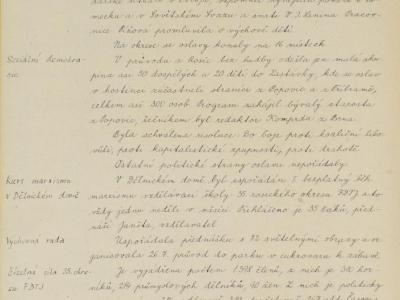 mecku a v Sovětském Svazu a smrti V. I. Lenina. Pracov-
promluvila o výchově dětí.
Na okrese se oslavy konaly na 16 místech
Sociální demokra-
cie
V průvodu z Rosic bez hudby odešla jen malá sku-
pina asi 50 dospělých a 20 dětí do Zastávky, kde se oslav
v hostinci zúčastnili straníci z Popovic a z Příbramě,
celkem asi 300 osob. Program zahájil bývalý starosta
z Popovic, řečníkem byl redaktor Komprda z Brna
Byla schválena resoluce: Do boje proti koaliční libo-
vůli, proti kapitalistické zpupnosti, proti drahotě.
Ostatní politické strany oslav nepořádaly.
Kurs marxismu
v Dělnickém domě
V Dělnickém domě byl uspořádán bezplatný běh
marxismu vzdělávací školy 35. rosického okresu FDTJ a to
vždy jednu neděli v měsíci. Přihlášeno je 35 žáků, před-
náší Janáta, vzdělavatel
Výchovná rada
Uspořádala přednášku s 72 světelnými obrazy a zor-
ganisovala 26. 7. průvod do parku v cukrovaru k zábavě
35. okre-
su FDTJ
Je vyjádřena počtem 1578 členů, z nich je 510 hor-
níků, 214 průmyslových dělníků, 40 žen. Z nich je politicky